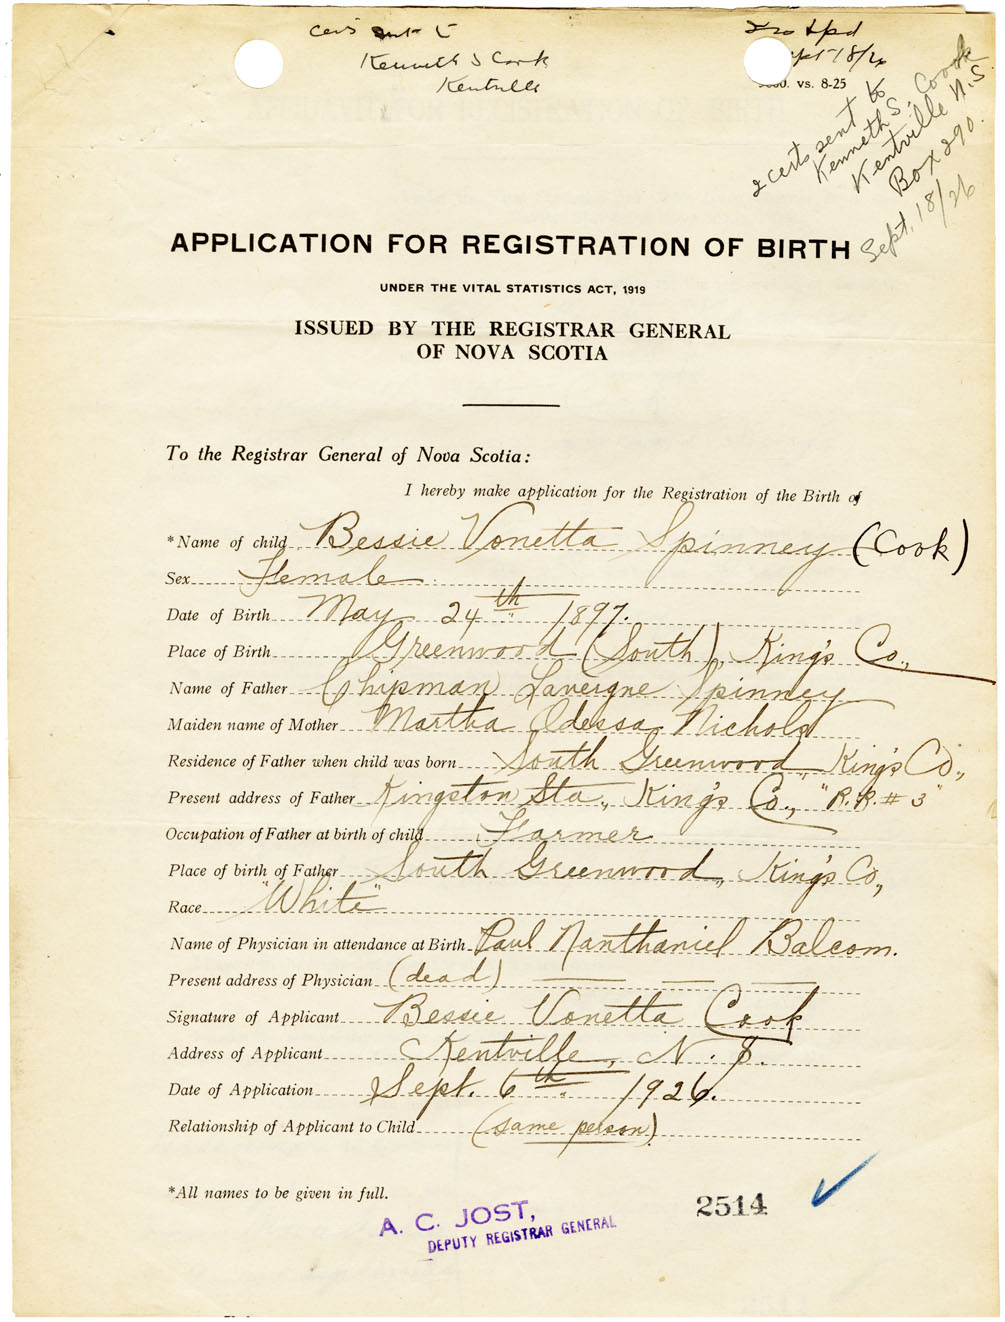 Certs sent to
Kenneth S Cook
Kentville
Sept 18/26
vs. 8-25
2 certs sent to
Kenneth S. Coook
Kentville N.S
Box 290.
Sept. 18/26
APPLICATION FOR REGISTRATION OF BIRTH
UNDER THE VITAL STATISTICS ACT, 1919
ISSUED BY THE REGISTRAR GENERAL
OF NOVA SCOTIA
To the Registrar General of Nova Scotia:
I hereby make application for the Registration of the Birth of
*Name of child Bessie Vonetta Spinney (Cook)
Sex Female
Date of Birth May 24th 1897.
Place of Birth Greenwood (South), King's Co.,
Name of Father Chipman Lavergne Spinney
Maiden name of Mother Martha Odessa Nichols
Residence of Father when child was born South Greenwood, King's Co.,
Present address of Father Kingston Sta., King's Co., "R.R. # 3"
Occupation of Father at birth of child Farmer
Place of birth of Father South Greenwood, King's Co.,
Race "White"
Name of Physician in attendance at Birth Paul Nanthaniel Balcom.
Present address of Physician (dead)
Signature of Applicant Bessie Vonetta Cook
Address of Applicant Kentville, N. S.
Date of Application Sept. 6th 1926.
Relationship of Applicant to Child (same person)
*All names to be given in full.
A. C. JOST,
DEPUTY REGISTRAR GENERAL
2514